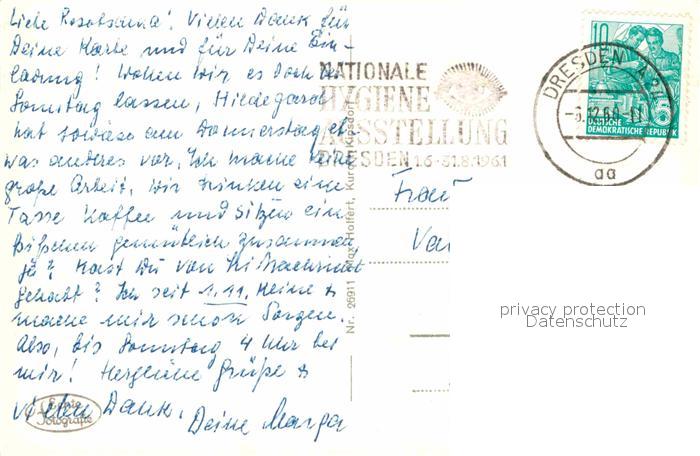 Liebe Rosotsana! Vielen Dank für
Deine Karte und für Deine Ein-
ladung! Wollen wir es doch bei
Sonntag lassen, Hildegard
hat sowieso am Donnerstag
was anderes vor. Ich mache keine
große Arbeit, wir trinken eine
Tasse Kaffee und sitzen ein
bißchen gemütlich zusammen,
ja? Hast Du von Nachricht
gehabt? Ich seit 1.11. keine &
mache mir schon Sorgen.
Also, bis Sonntag 4 Uhr bei
mir! Herzliche Grüße &
vielen Dank,
Deine Marga
Echte
Fotografie
Nr. 25911 Max Hoffert, Kurort
NATIONALE
HYGIENE
AUSSTELLUNG
DRESDEN 16.-31.8.1961
DRESDEN
aa
10
5
DEUTSCHE
DEMOKRATISCHE REPUBLIK
Frau
privacy protection
Datenschutz